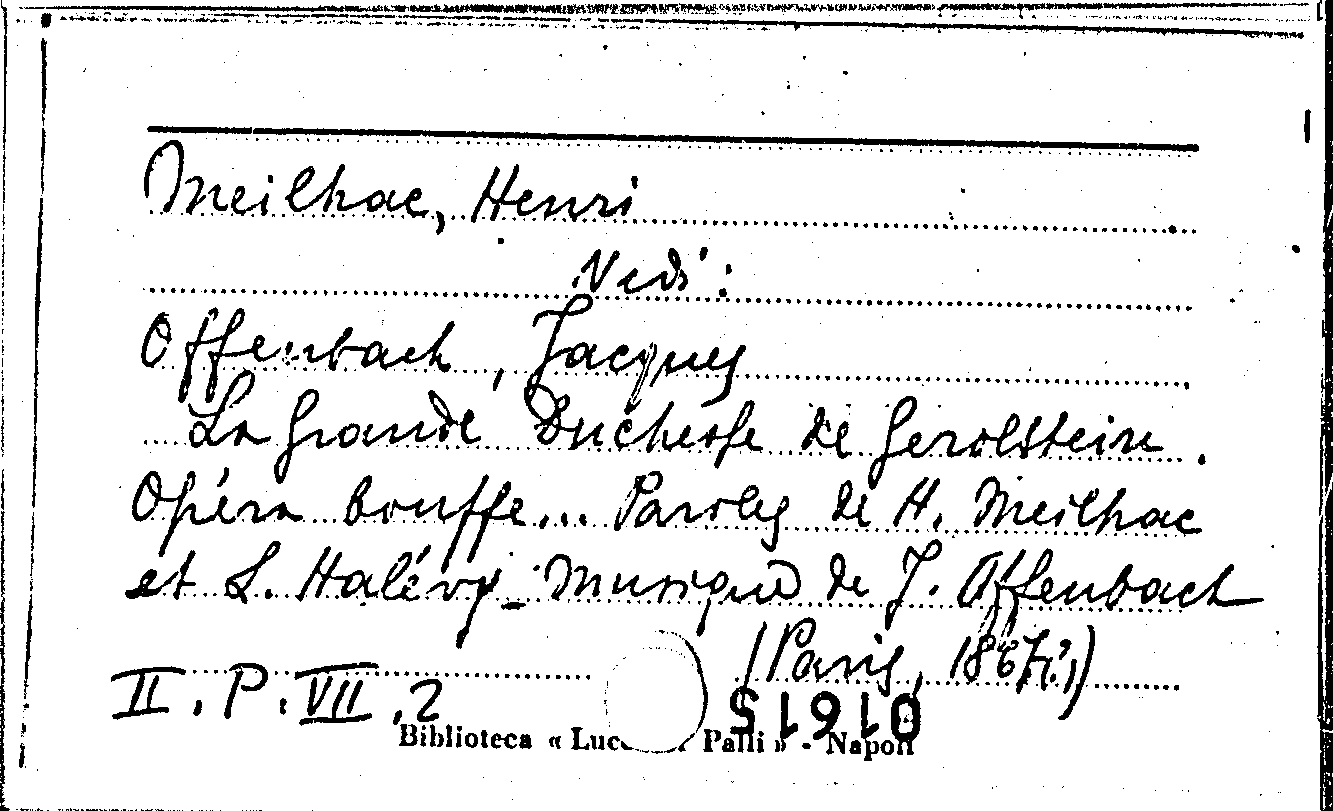 Meilhac, Henri
Vedi:
Offenbach, Jacques
La Grande Duchesse de Gerolstein.
Opéra bouffe... Paroles de H. Meilhac
et L. Halévy - Musique de J. Offenbach
(Paris, 1867(?))
II. P. VII. 2
01615
Biblioteca « Luc Palli » - Napoli